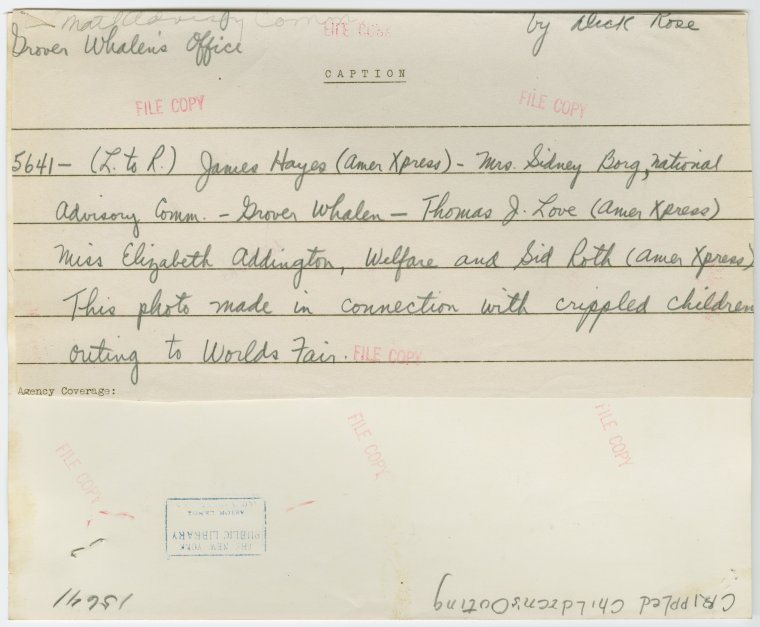 Nat'l Advisory Comm.
Grover Whalen's Office
by Dick Rose
FILE COPY
CAPTION
FILE COPY
FILE COPY
5641 - (L. to R.) James Hayes (Amer Xpress) - Mrs. Sidney Borg, National
Advisory Comm. - Grover Whalen - Thomas J. Love (Amer Xpress)
Miss Elizabeth Addington, Welfare and Sid Roth (Amer Xpress)
This photo made in connection with crippled children
outing to Worlds Fair.
FILE COPY
Agency Coverage:
FILE COPY
FILE COPY
FILE COPY
THE NEW YORK
PUBLIC LIBRARY
ASTOR LENOX
15641
CRippled ChildrensOuting